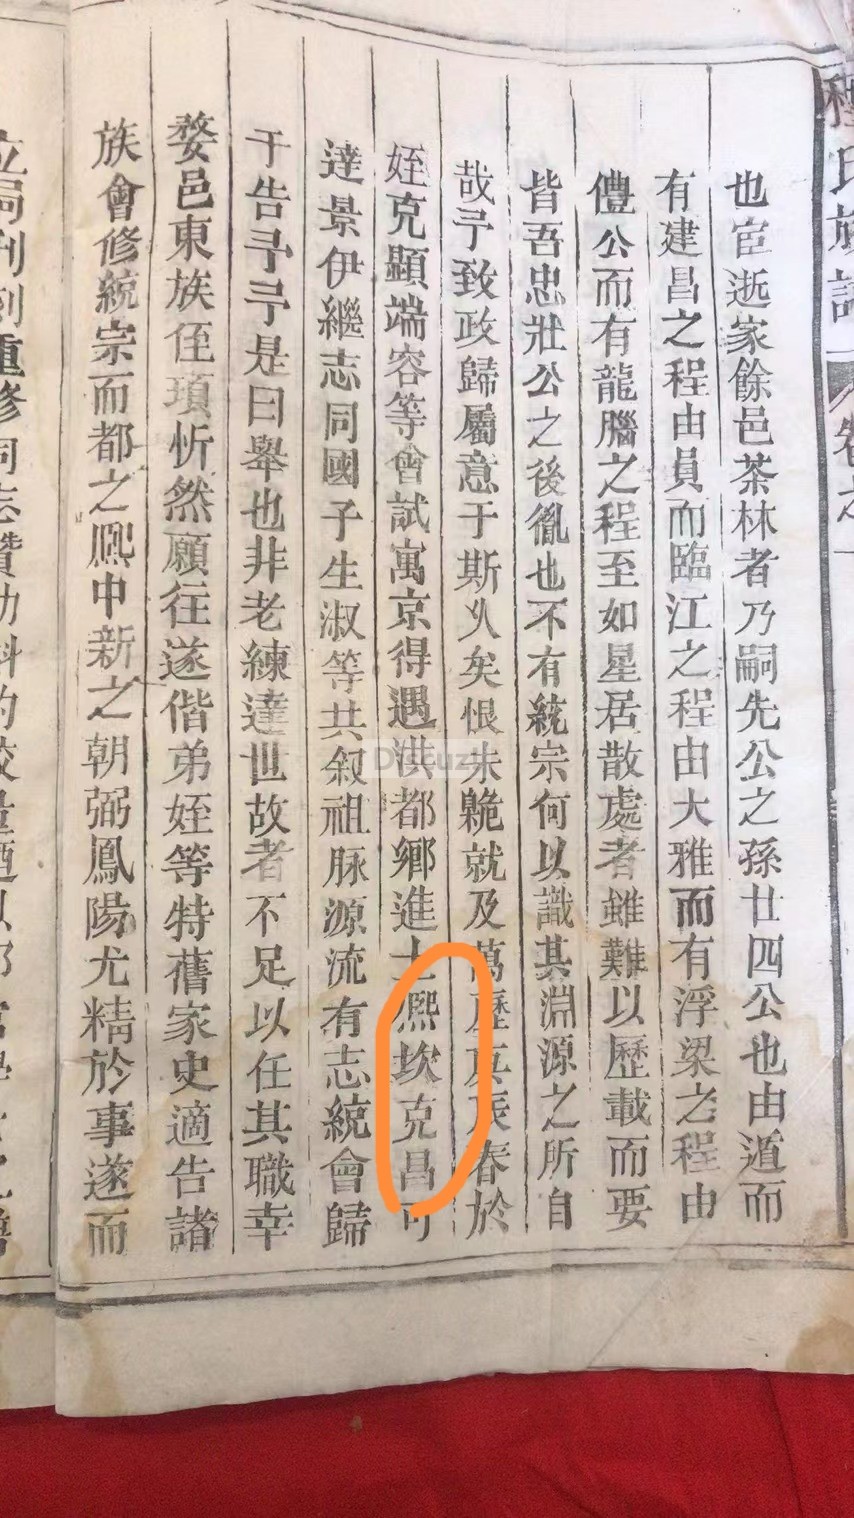 程氏族譜
卷之一
也宦逝家餘邑茶林者乃嗣先公之孫廿四公也由遒而
有建昌之程由員而臨江之程由大雅而有浮梁之程由
僼公而有龍腦之程至如星居散處者雖難以歷載而要
皆吾忠壯公之後胤也不有統宗何以識其淵源之所自
哉予致政歸屬意于斯乆矣恨未㒯就及萬歷庚辰春於
姪克顯端容等會試寓京得遇洪都鄉進士熈坎克昌可
達景伊繼志同國子生淑等共叙祖脉源流有志統會歸
于告予予是曰舉也非老練達世故者不足以任其職幸
婺邑東族侄頊忻然願往遂偕弟姪等特舊家史適告諸
族會修統宗而都之熈中新之朝弼鳳陽尤精於事遂而